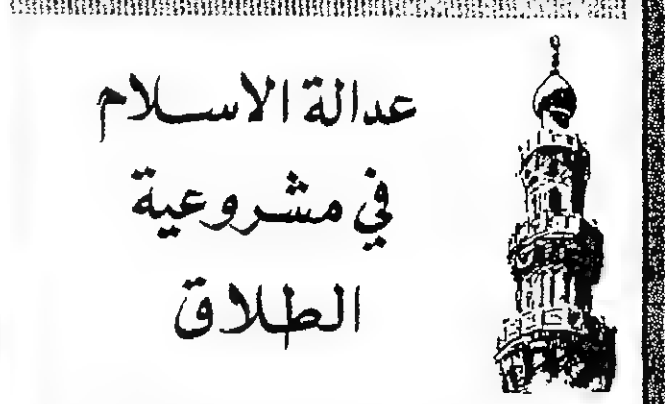 عدالة الاسلام
في مشروعية
الطلاق